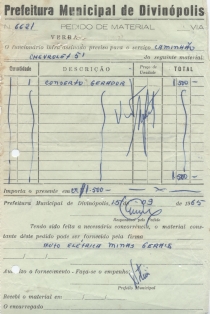 Prefeitura Municipal de Divinópolis
No 6621 PEDIDO DE MATERIAL VIA
VERBA
O funcionário infra-assinado precisa para o serviço CAMINHÃO
CHEVROLET 51 do seguinte material.
Quantidade DESCRIÇÃO Preço da Unidade TOTAL
1 CONSERTO GERADOR 1.500
Importa o presente em Cr$ 1.500
Prefeitura Municipal de Divinópolis, 15/ 09 1965
Responsável pelo Pedido
Tendo sido feita a necessária concorrência, o material constante dêste pedido pode ser fornecido pela firma
AUTO ELÉTRICA MINAS GERAIS
Autorizo o fornecimento - Faça-se o empenho
Prefeito Municipal
Recebi o material em
O encarregado